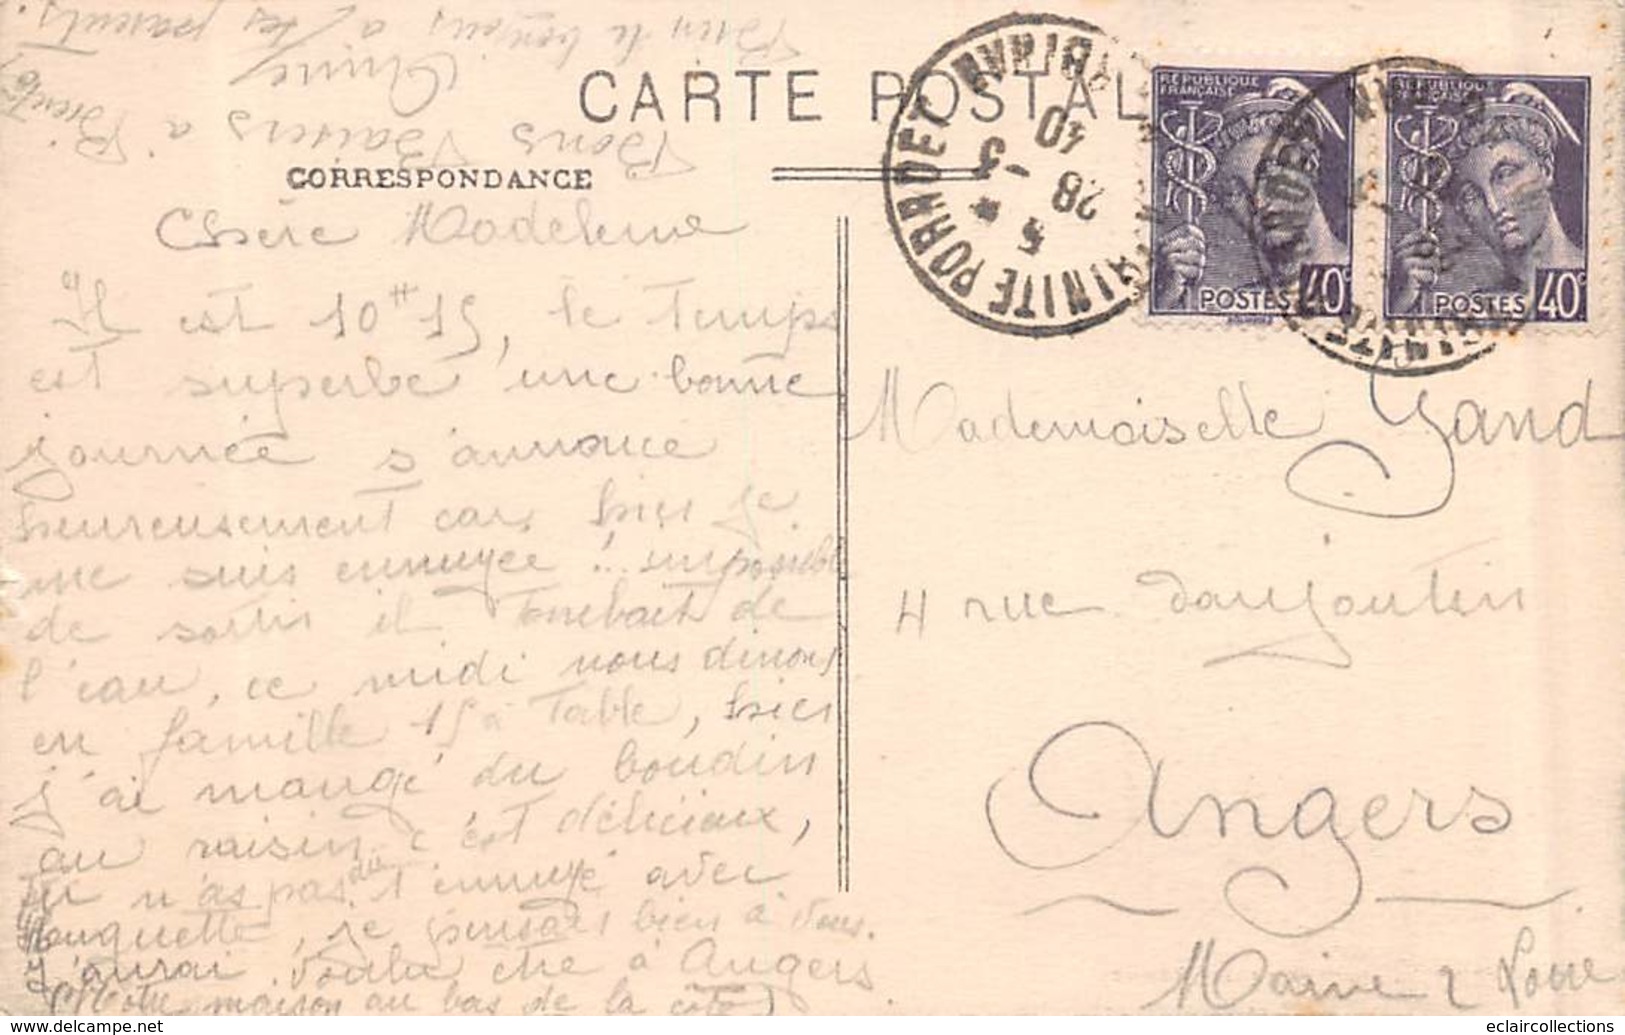 CARTE POSTALE
CORRESPONDANCE
Chère Madeleine
Il est 10H15, le temps
est superbe une bonne
journée s'annonce
heureusement car hier je
me suis ennuyée !.. impossible
de sortir il tombait de
l'eau, ce midi nous dinons
en famille 15 à table, hier
j'ai mangé du boudin
au raisin c'est délicieux,
tu n'as pas dû t'ennuyé avec
Huguette, je pensais bien à vous.
J'aurai voulu être à Angers
(Notre maison au bas de la côte)
Bons Baisers à Bientôt
Bien le bonjour à tes parents.
REPUBLIQUE
FRANÇAISE
POSTES
40c
REPUBLIQUE
FRANÇAISE
POSTES
40c
LA TRINITE PORHOET MORBIHAN
5
28 -3
40
Mademoiselle Gand
4 rue
Angers
Maine & Loire
eclaircollections